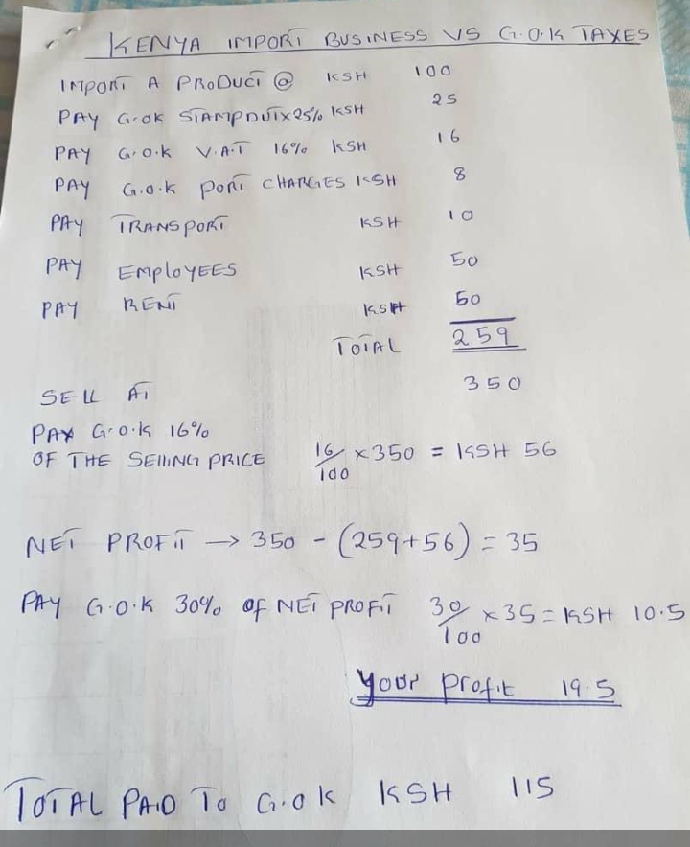 KENYA IMPORT BUSINESS VS G.O.K TAXES
IMPORT A PRODUCT @ KSH 100
PAY G.OK STAMPDUTX25% KSH 25
PAY G.O.K V.A.T 16% KSH 16
PAY G.O.K PORT CHARGES KSH 8
PAY TRANSPORT KSH 10
PAY EMPLOYEES KSH 50
PAY RENT KSH 50
TOTAL 259
SELL AT 350
PAY G.O.K 16%
OF THE SELLING PRICE 16/100 x 350 = KSH 56
NET PROFIT → 350 - (259+56) = 35
PAY G.O.K 30% OF NET PROFIT 30/100 x 35 = KSH 10.5
Your profit 19.5
TOTAL PAID TO G.O.K KSH 115